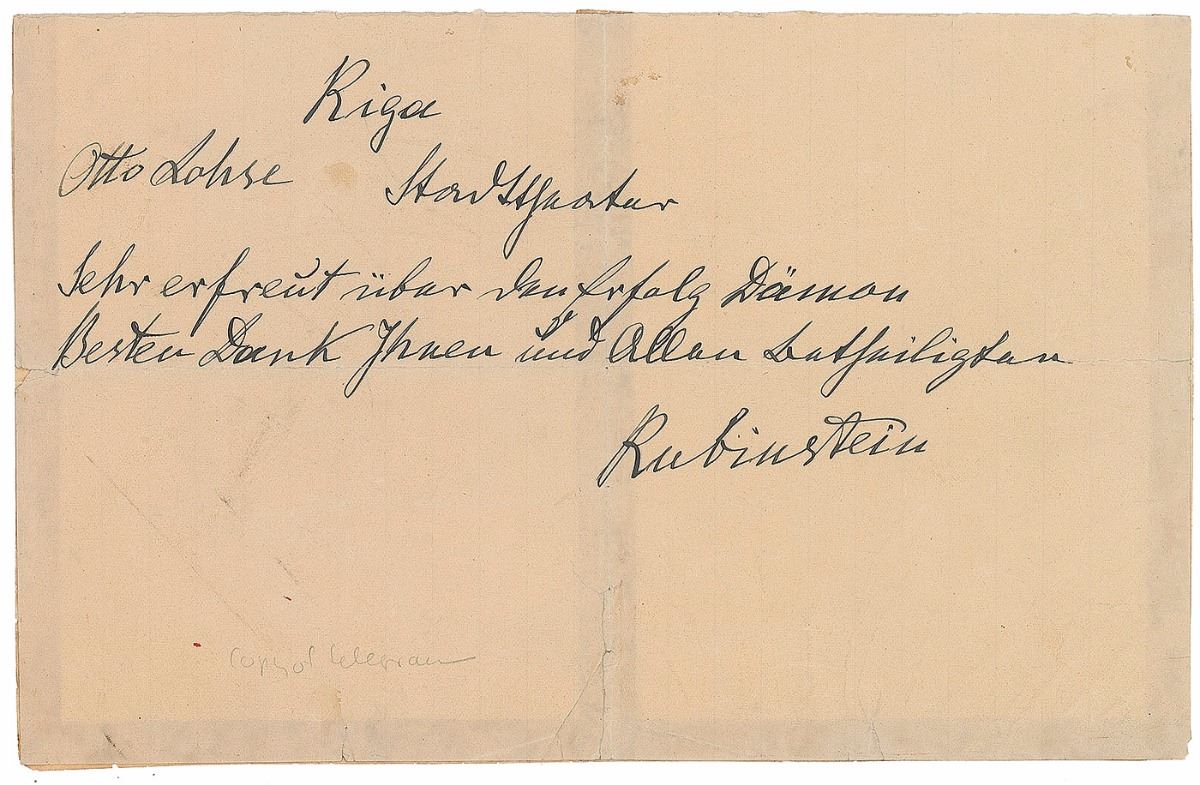 Riga
Otto Lohse Stadttheater
Sehr erfreut über den Erfolg Dämon
Besten Dank Ihnen und Allen betheiligten
Rubinstein
copy of telegram